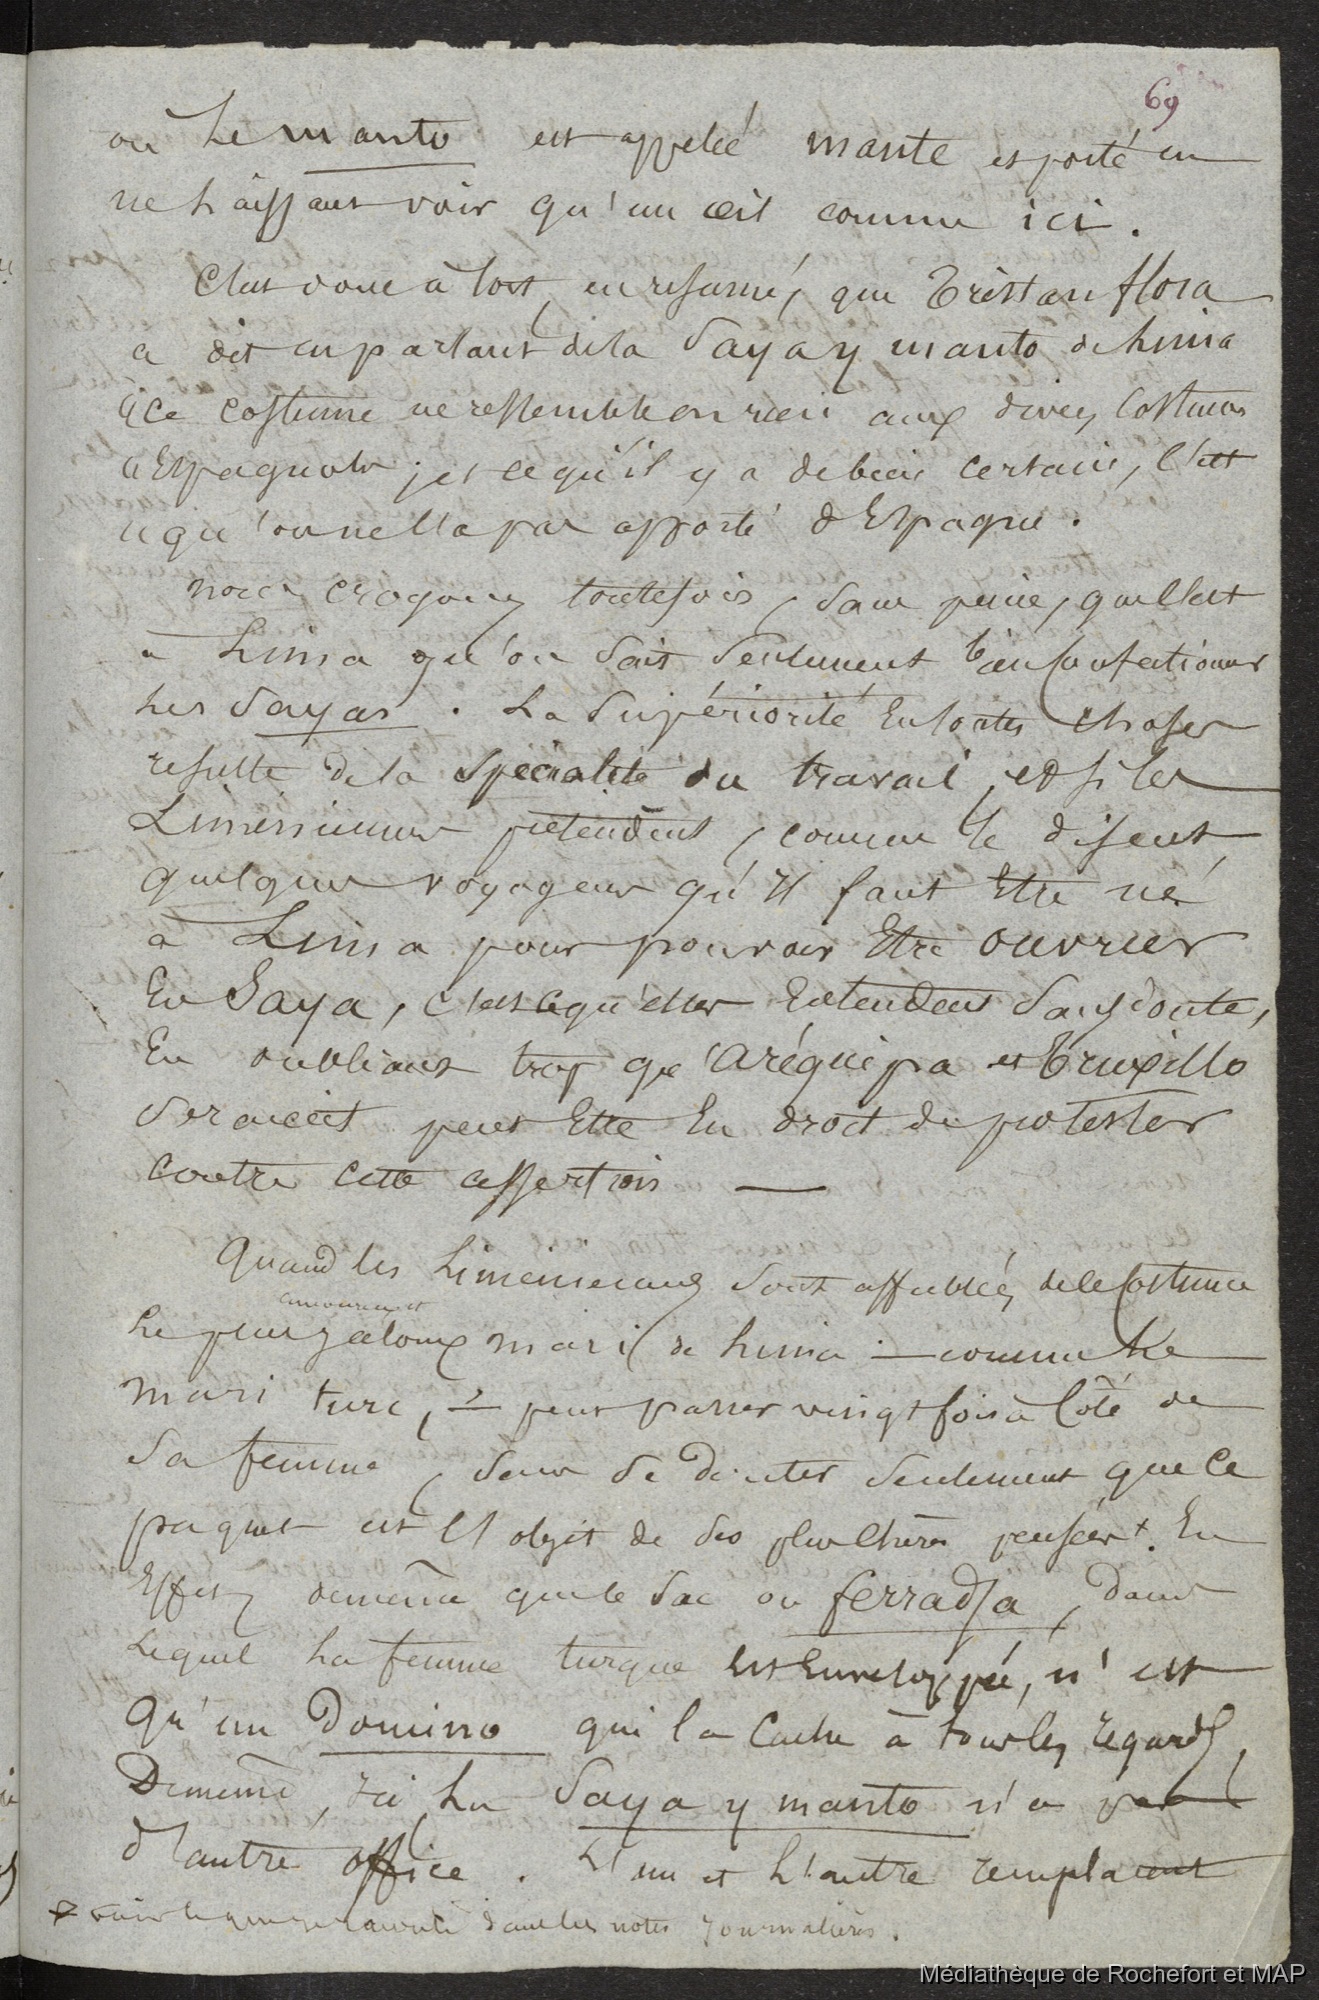 69
où le manto est appelé mante et porté en
ne laissant voir qu'un œil comme ici.
C'est donc à tort, en résumé, que Tristan flora
a dit en parlant de la Saya y manto de Lima
« Ce costume ne ressemble en rien aux divers Costumes
« Espagnols ; et ce qu'il y a de bien certain, c'est
« qu'on ne l'a pas apporté d'Espagne.
nous croyons toutefois, sans peine, que c'est
à Lima qu'on sait seulement bien confectionner
les Sayas. La Supériorité en toutes choses
resulte de la spécialité du travail, et si les
Liméniennes prétendent, comme le disent
quelques voyageurs qu'il faut Etre né
à Lima pour pouvoir Etre ouvrier
En Saya, c'est ce qu'elles Entendent sans doute,
En oubliant trop qu'Aréquipa et Truxillo
seraient peut Etre En droit de protester
contre cette assertion —
Quand les Liméniennes sont affublées de ce Costume
Le plus jaloux mari de Lima — comme le
mari turc, — peut passer vingt fois à côté de
Sa femme, sans se douter seulement que ce
paquet est l'objet de ses plus chères pensées +. En
Effet, de même que le Sac ou ferradja, dans
Lequel La femme turque Est Enveloppée, n'est
qu'un Domino qui la cache à tous les regards,
De même, ici, La Saya y manto n'a pas
d'autre office. L'un et L'autre remplacent
dans les notes journalières.
Médiathèque de Rochefort et MAP